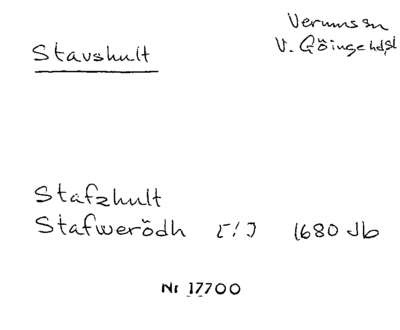 Stavshult
Verumssn
V. Göingehd
Stafzhult
Stafwerödh [!] 1680 Jb
Nr 17700